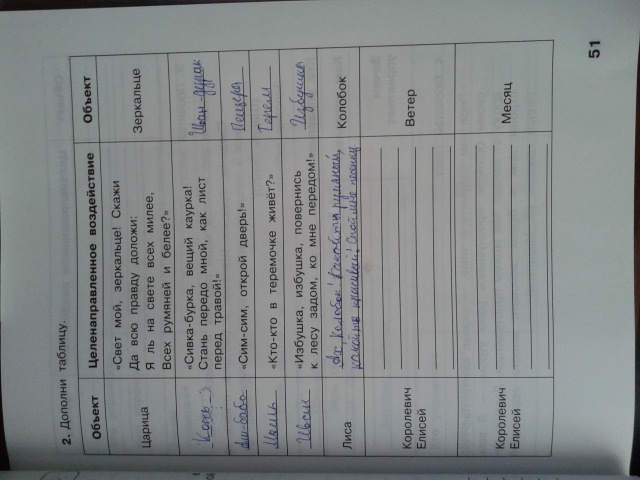 2. Дополни таблицу.
Объект Целенаправленное воздействие Объект
Царица «Свет мой, зеркальце! Скажи Зеркальце
Да всю правду доложи:
Я ль на свете всех милее,
Всех румяней и белее?»
Конь «Сивка-бурка, вещий каурка! Иван-дурак
Стань передо мной, как лист
перед травой!»
Али-баба «Сим-сим, открой дверь!» Пещера
Мышь «Кто-кто в теремочке живёт?» Терем
Иван «Избушка, избушка, повернись Избушка
к лесу задом, ко мне передом!»
Лиса Ах, Колобок! Какой ты румяный, Колобок
какой ты красивый! Спой мне песенку
Королевич Ветер
Елисей
Королевич Месяц
Елисей
51